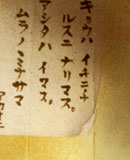 キョウハ イチニチ
ルスニ ナリマス。
アシタハ イマス。
ムラノ ミナサマ